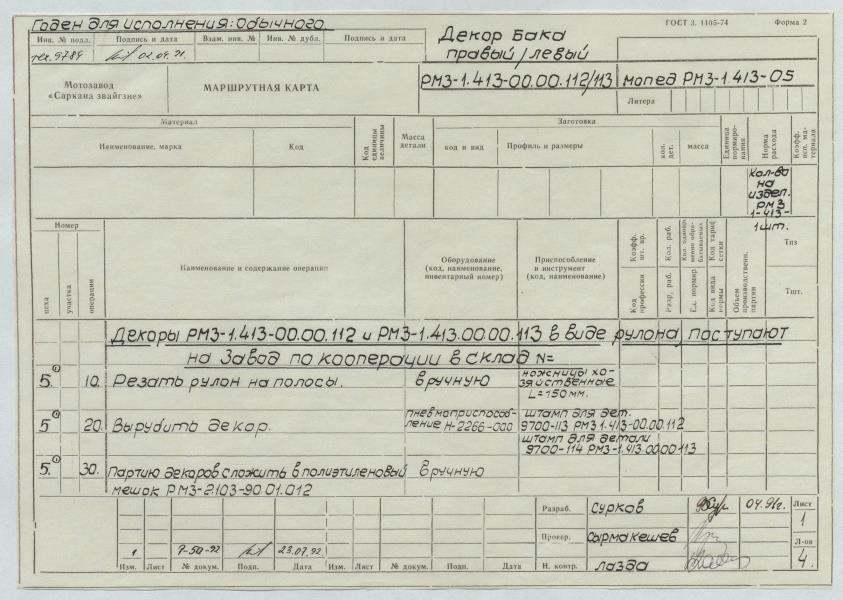 Годен для исполнения: обычного
ГОСТ 3. 1105-74 Форма 2
Инв. № подл. Подпись и дата Взам. инв. № Инв. № дубл. Подпись и дата
02.04.91.
Декор бака
правый / левый
Мотозавод
«Саркана звайгзне»
МАРШРУТНАЯ КАРТА
РМЗ-1.413-00.00.112/113
мопед РМЗ-1.413-05
Литера
Материал
Наименование, марка
Код
Код единицы величины
Масса детали
Заготовка
код и вид
Профиль и размеры
кол. дет.
масса
Единица нормирования
Норма расхода
Коэфф. исп. материала
Кол-во
на
издел.
РМЗ
1-413-
1шт.
Номер
цеха
участка
операции
Наименование и содержание операции
Оборудование
(код, наименование,
инвентарный номер)
Приспособление
и инструмент
(код, наименование)
Коэфф. шт. вр.
Код профессии
Кол. раб.
Разр. раб.
Кол. одновременно обрабатываемых
Ед. нормир.
Код тариф. сетки
Код вида нормы
Объем производственн. партии
Тпз
Тшт.
Декоры РМЗ-1.413-00.00.112 и РМЗ-1.413.00.00.113 в виде рулона, поступают
на завод по кооперации в склад №=
5 10. Резать рулон на полосы. вручную ножницы хо-
зяйственные
L=150мм.
5 20. Вырубить декор. пневмоприспособ-
ление Н-2266-000
штамп для дет.
9700-113 РМЗ 1.413-00.00.112
штамп для детали
9700-114 РМЗ-1.413.00.00.113
5 30. Партию декоров сложить в полиэтиленовый вручную
мешок РМЗ-2.103-90.01.012
Разраб. Сурков 04.91г. Лист
1
Провер. Сырмакешев
1 7-50-92 23.07.92.
Л-ов
4.
Изм. Лист № докум. Подп. Дата Изм. Лист № докум. Подп. Дата Н. контр. Лазда